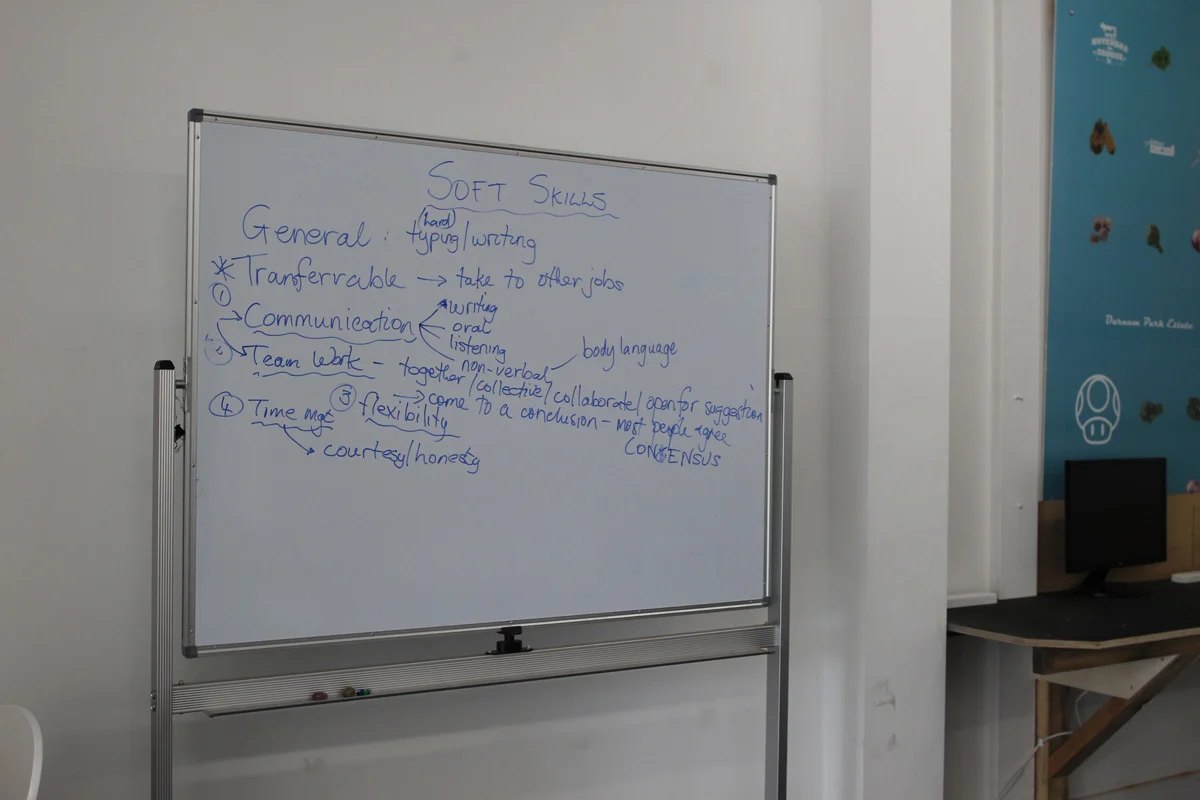 SOFT SKILLS
(hard)
General : typing/writing
* Tranferrable → take to other jobs
① → Communication
writing
oral
listening
non-verbal
body language
② Team Work – together/collective/collaborate/open for suggestion
→ come to a conclusion – most people agree
CONSENSUS
③ flexibility
④ Time mgt
→ courtesy/honesty
BUTCHERS
Durnam Park Estate